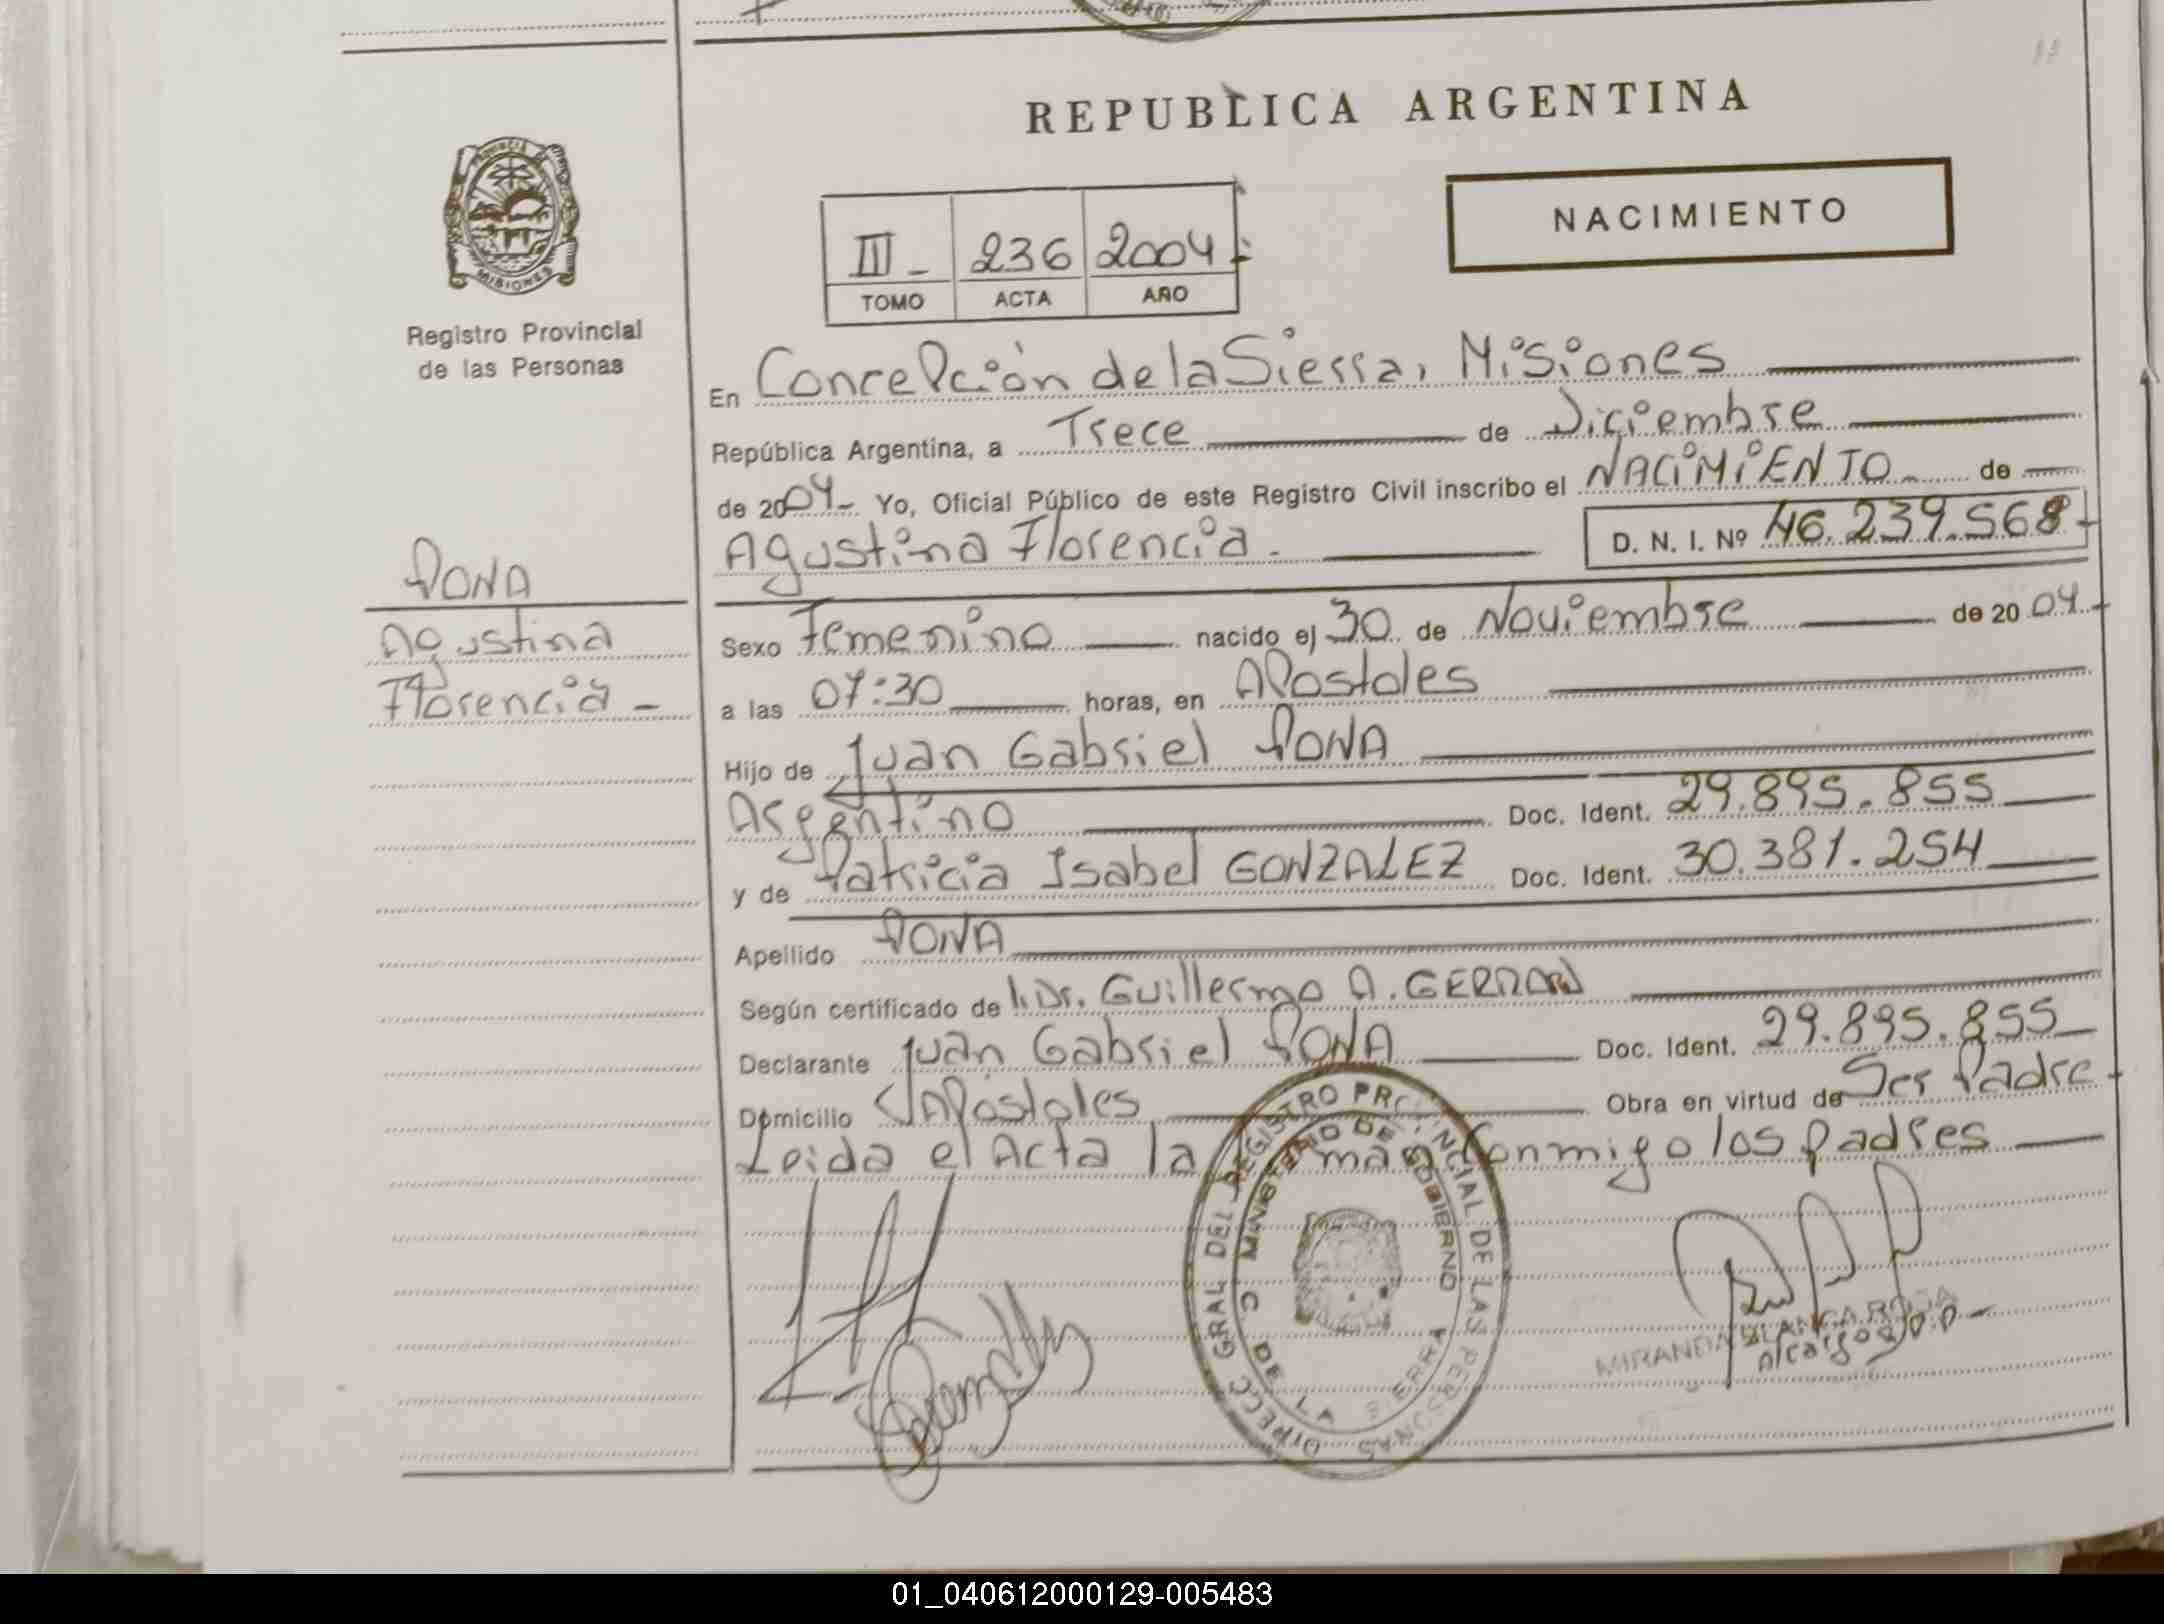 REPUBLICA ARGENTINA
NACIMIENTO
III - 236 2004
TOMO ACTA AÑO
PROVINCIA DE MISIONES
Registro Provincial
de las Personas
En Concepción de la Sierra, Misiones
República Argentina, a Trece de Diciembre
de 2004 Yo, Oficial Público de este Registro Civil inscribo el NACIMIENTO de
Agustina Florencia. D. N. I. Nº 46.239.568
PONA
Agustina
Florencia -
Sexo Femenino nacido el 30 de Noviembre de 2004
a las 07:30 horas, en Apostoles
Hijo de Juan Gabriel PONA
Argentino Doc. Ident. 29.895.855
y de Patricia Isabel GONZALEZ Doc. Ident. 30.381.254
Apellido PONA
Según certificado de Dr. Guillermo A.
Declarante Juan Gabriel PONA Doc. Ident. 29.895.855
Domicilio Apostoles Obra en virtud de Ser Padre
Leida el Acta la man conmigo los padres
DIRECC GRAL DEL REGISTRO PROVINCIAL DE LAS PERSONAS
MINISTERIO DE GOBIERNO
C DE LA SIERRA
MIRANDA BLANCA ROSA
01_040612000129-005483